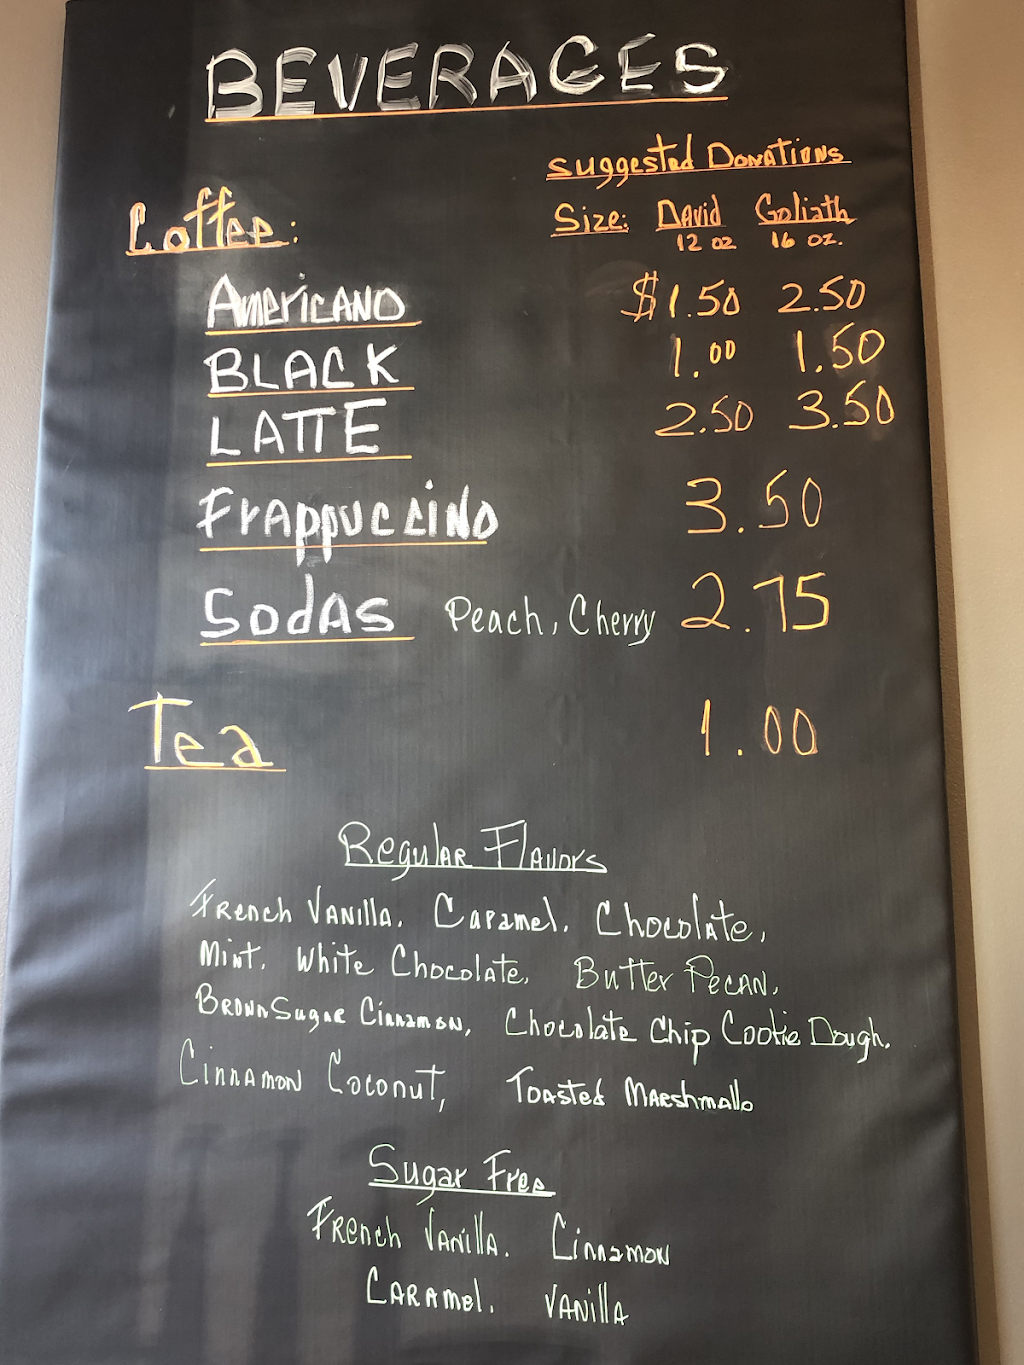 BEVERAGES
Suggested Donations
Coffee:
Size: David Goliath
12 oz 16 oz.
Americano $1.50 2.50
BLACK 1.00 1.50
LATTE 2.50 3.50
Frappuccino 3.50
Sodas Peach, Cherry 2.75
Tea 1.00
Regular Flavors
French Vanilla. Caramel. Chocolate,
Mint. White Chocolate, Butter Pecan,
Brown Sugar Cinnamon, Chocolate Chip Cookie Dough.
Cinnamon Coconut, Toasted Marshmallo
Sugar Free
French Vanilla. Cinnamon
Caramel. Vanilla